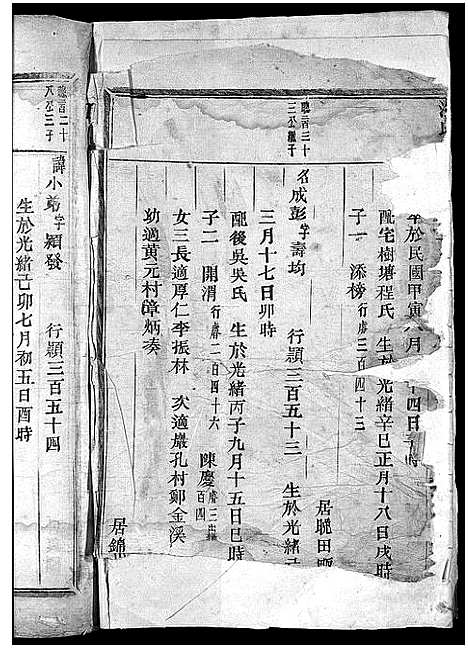 於民國甲寅八月 四日 時
配宅樹塘程氏 生於光緒辛巳正月十八日戌時
子一 添榜 行 三百四十三
居曉田
聽言三十
三公繼子
名成彭字壽均 行顯三百五十三 生於光緒
三月十七日卯時
配後吳吳氏 生於光緒丙子九月十五日巳時
子二 開渭 行 一百四十六 陳慶
女三長適厚仁李振林 次適嚴孔村鄭金溪
幼適黃元村 炳湊
居錦
聽言二十
八公三子
諱小弟字穎發 行顯三百五十四
生於光緒己卯七月初五日酉時